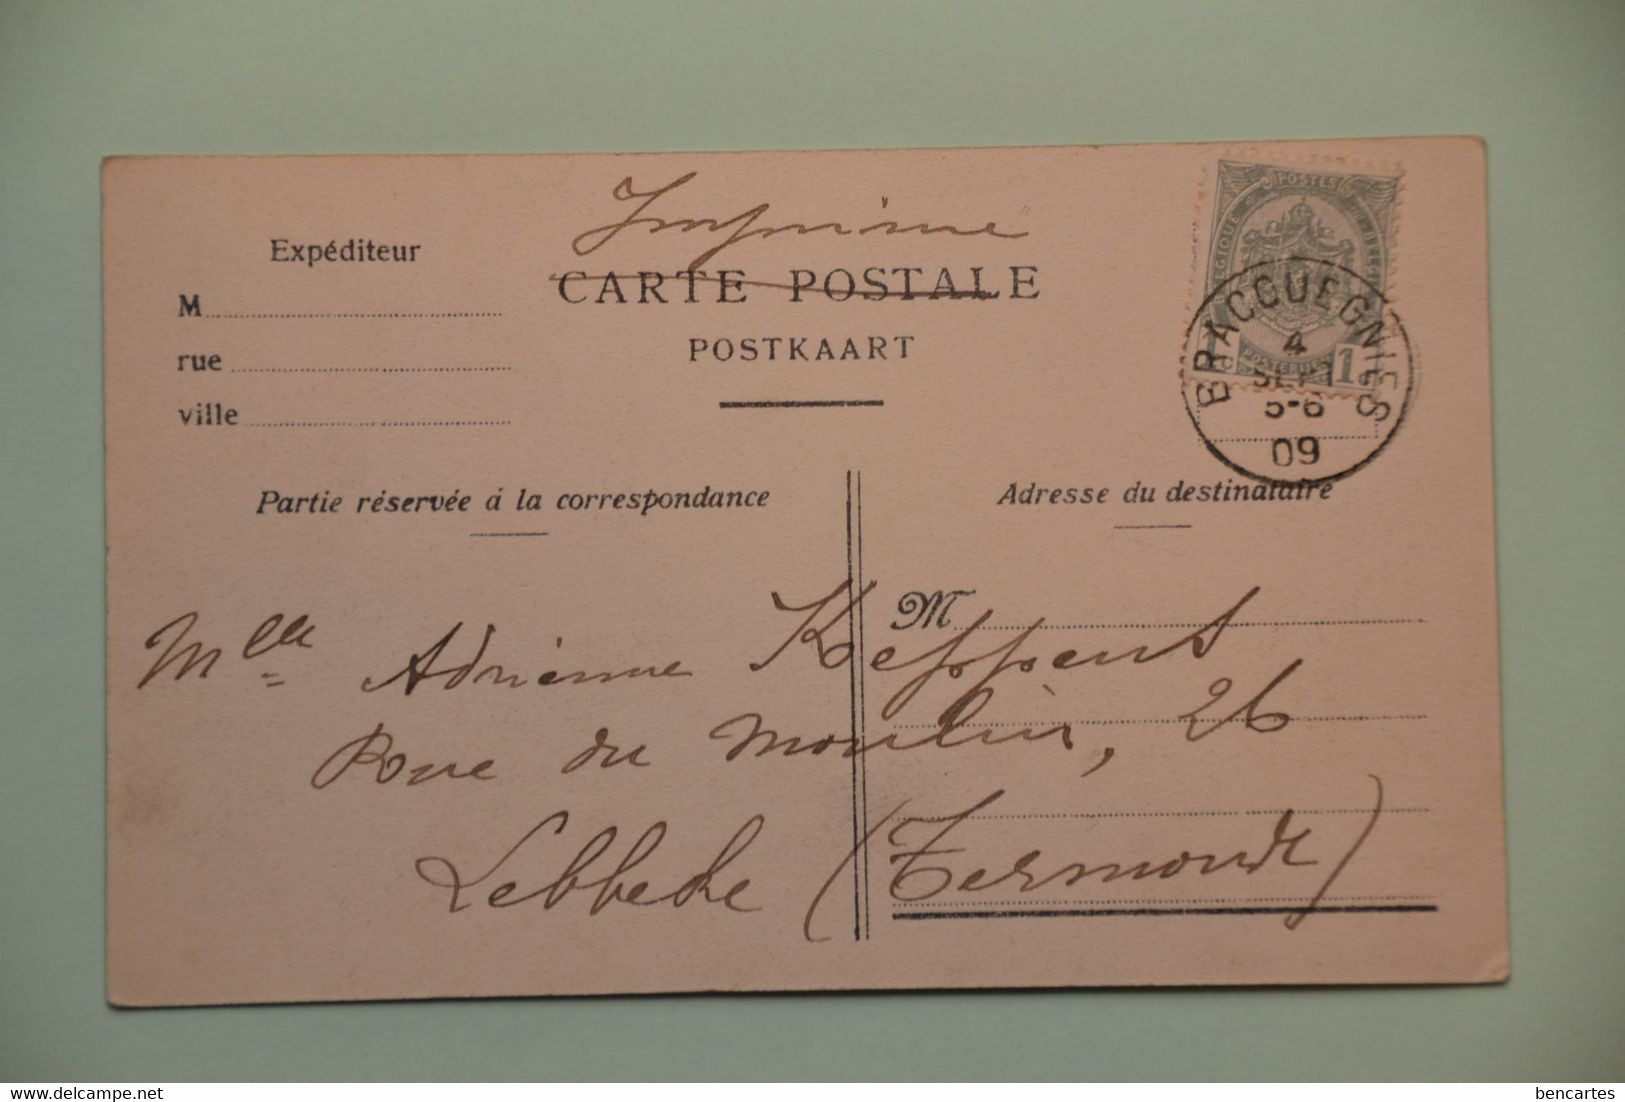 Imprimé
CARTE POSTALE
POSTKAART
Expéditeur
M
rue
ville
POSTES
BELGIQUE
1 C 1
BRACQUEGNIES
4
SEPT
5-6
09
Partie réservée à la correspondance
Adresse du destinataire
M
Mlle Adrienne Keppens
Rue du Moulin, 26
Lebbeke (Termonde)
delcampe.net
bencartes